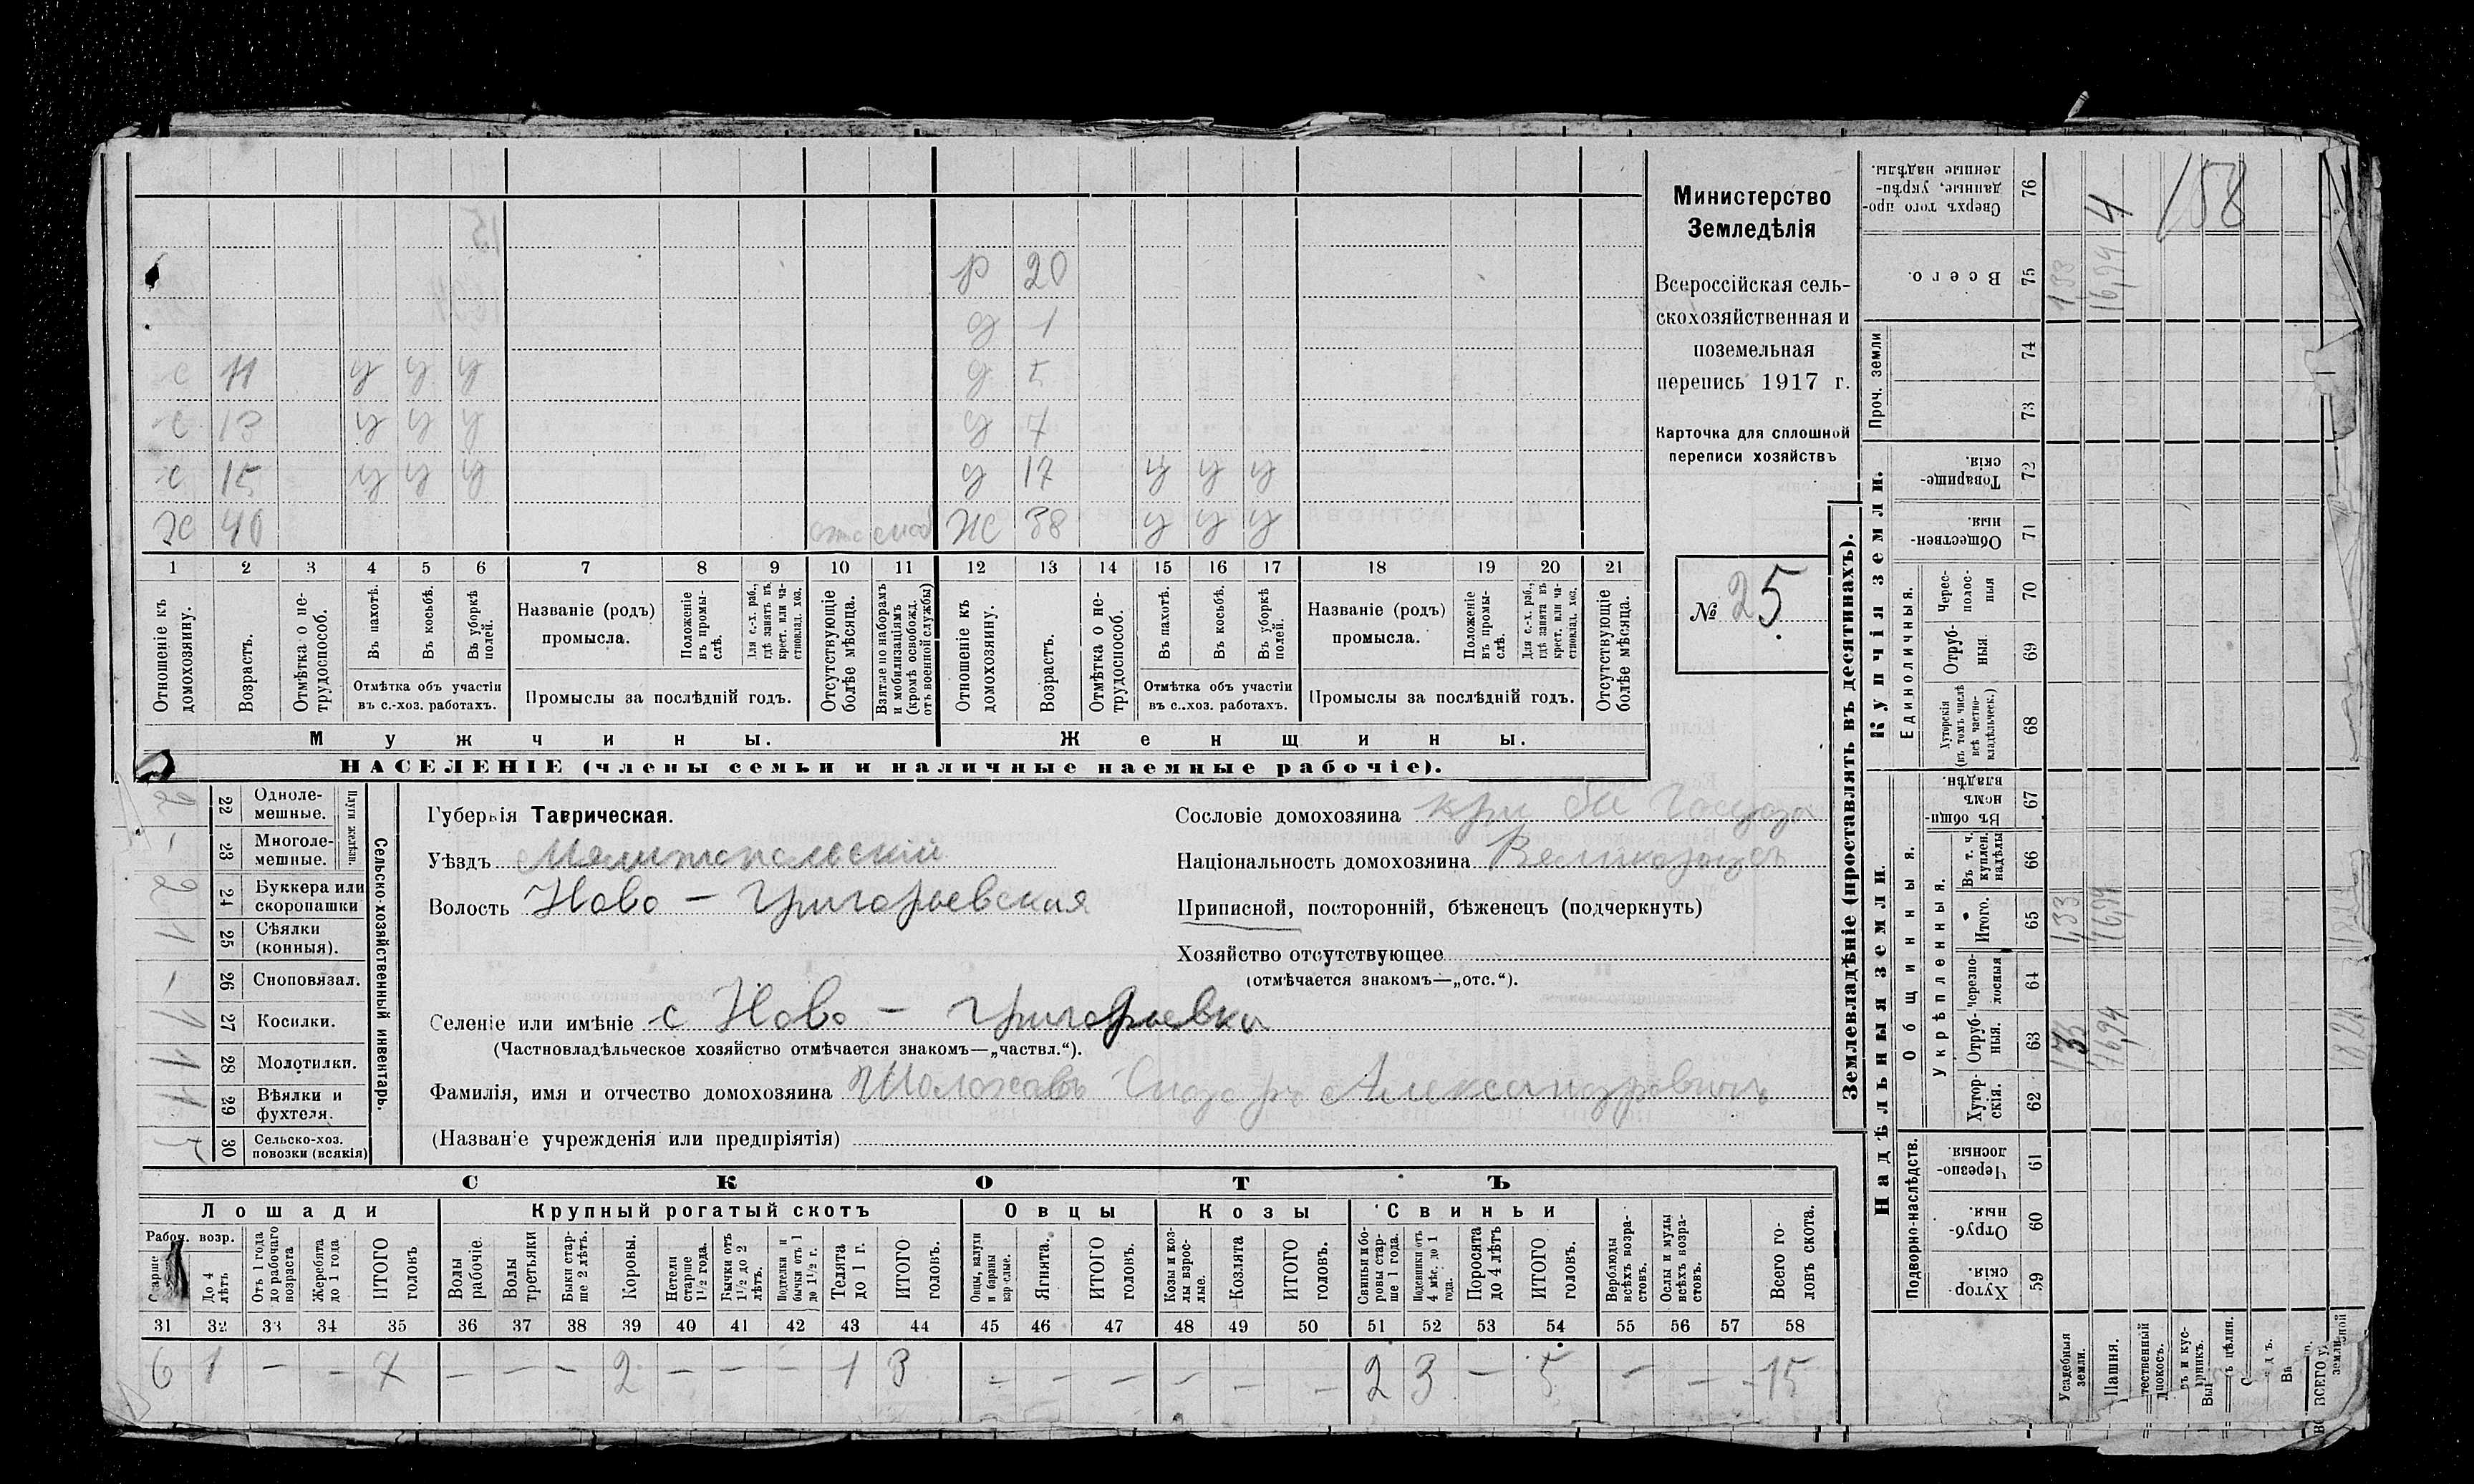 р 20
д 1
с 11 у у у д 5
с 13 у у у д 7
с 15 у у у д 17 у у у
Ж 38 у у у
1 2 3 4 5 6 7 8 9 10 11 12 13 14 15 16 17 18 19 20 21
Отношеніе къ домохозяину.
Возрастъ.
Отмѣтка о не-трудоспособ.
Въ пахотѣ.
Въ косьбѣ.
Въ уборкѣ полей.
Отмѣтка объ участіи
въ с.-хоз. работахъ.
Названіе (родъ)
промысла.
Положеніе въ промы-слѣ.
Для с.-х. раб., гдѣ занятъ въ крест. или ча-стновлад. хоз.
Промыслы за послѣдній годъ.
Отсутствующіе болѣе мѣсяца.
Взятые по наборамъ и мобилизаціямъ (кромѣ освобожд. отъ военной службы)
Отношеніе къ домохозяину.
Возрастъ.
Отмѣтка о не-трудоспособ.
Въ пахотѣ.
Въ косьбѣ.
Въ уборкѣ полей.
Отмѣтка объ участіи
въ с..хоз. работахъ.
Названіе (родъ)
промысла.
Положеніе въ промы-слѣ.
Для с.-х. раб., гдѣ занята въ крест. или ча-стновлад. хоз.
Промыслы за послѣдній годъ.
Отсутствующіе болѣе мѣсяца.
Мужчины. Женщины.
НАСЕЛЕНІЕ (члены семьи и наличные наемные рабочіе).
Министерство
Земледѣлія
Всероссійская сель-
скохозяйственная и
поземельная
перепись 1917 г.
Карточка для сплошной
переписи хозяйствъ
№ 25
2 22 Одноле-мешные.
- 23 Многоле-мешные.
Плуги желѣзн.
2 24 Буккера или скоропашки
1 25 Сѣялки (конныя).
- 26 Сноповязал.
1 27 Косилки.
1 28 Молотилки.
1 29 Вѣялки и фухтеля.
30 Сельско-хоз. повозки (всякія)
Сельско-хозяйственный инвентарь.
Губернія Таврическая.
Уѣздъ Мелитопольскій
Волость Ново - Григорьевская
Селеніе или имѣніе с Ново - Григорьевка
(Частновладѣльческое хозяйство отмѣчается знакомъ—„частвл.“).
Фамилія, имя и отчество домохозяина Александровичъ
(Названіе учрежденія или предпріятія)
Сословіе домохозяина
Національность домохозяина Великороссъ
Приписной, посторонній, бѣженецъ (подчеркнуть)
Хозяйство отсутствующее
(отмѣчается знакомъ—„отс.“).
СКОТЪ
Лошади Крупный рогатый скотъ Овцы Козы Свиньи
Рабоч. возр.
Старше
До 4 лѣтъ
Отъ 1 года до рабочаго возраста
Жеребята до 1 года
ИТОГО головъ
Волы рабочіе.
Волы третьяки
Быки стар-ше 2 лѣтъ.
Коровы.
Нетели старше 1½ года.
Бычки отъ 1½ до 2 лѣтъ.
Подтелки и бычки отъ 1 до 1½ г.
Телята до 1 г.
ИТОГО головъ.
Овцы, валухи и бараны взрослые.
Ягнята.
ИТОГО головъ.
Козы и коз-лы взрос-лые.
Козлята
ИТОГО головъ.
Свиньи и бо-ровы стар-ше 1 года.
Подсвинки отъ 4 мѣс. до 1 года.
Поросята до 4 лѣтъ
ИТОГО головъ.
Верблюды всѣхъ возра-стовъ.
Ослы и мулы всѣхъ возра-стовъ.
Всего го-ловъ скота.
31 32 33 34 35 36 37 38 39 40 41 42 43 44 45 46 47 48 49 50 51 52 53 54 55 56 57 58
6 1 - - 7 - - - 2 - - - 1 3 - - - - - - 2 3 - 5 - - - 15
Землевладѣніе (проставлять въ десятинахъ).
Купчія земли.
Надѣльныя земли.
Сверхъ того про-данные, укрѣп-ленные надѣлы. 76 4 158
Всего. 75 16,94
Проч. земли 74 73
Товарище-скія. 72
Обществен-ныя. 71
Единоличныя.
Черес-полос-ныя 70
Отруб-ныя. 69
Хуторскія (въ томъ числѣ всѣ частно-владѣльческ.) 68
Общинныя.
Въ общи-номъ владѣн. 67
Укрѣпленныя.
Въ т. ч. куплен. надѣлы 66
Итого. 65 16,94
Черезпо-лосныя 64
Отруб-ныя. 63 16,94
Хутор-скія. 62
Подворно-наслѣдств.
Черезпо-лосныя 61
Отруб-ныя. 60
Хутор-скія. 59
Усадебныя земли.
Пашня.